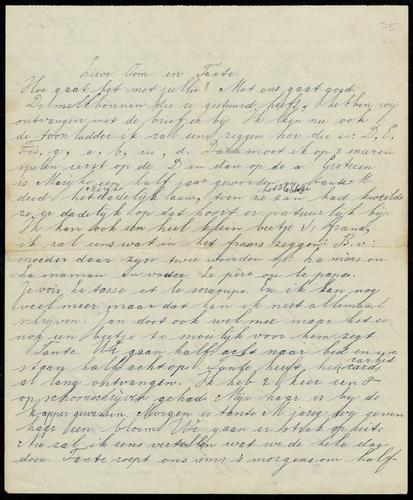 75
Lieve Oom en Tante.
Hoe gaat het met jullie? Met ons gaat goed.
De melkbonnen die u gestuurd heeft, hebben wij
ontvangen met de brief er bij Ik ken nu ook
de toonladder ik zal eens zeggen hoe die is: D, E,
Fis, g, a, b, cis, d. Dat moet ik op 2 snaren
spelen eerst op de D en dan op de a Gisteren
is Marijke een half jaar geworden tante M
deed Marijke het slabbetje aan, toen ze aan had kwijlde
ze er dadelijk op dat hoort er natuurlijk bij.
Ik kan ook een heel klein beetje Frans,
ik zal eens wat in het frans zeggen: B.v:
moeder daar zijn twee woorden la mère ou
la maman en vader Le père ou le papa.
Je vois la tasse et la soucoupe. En ik kan nog
veel meer maar dat kan ik niet allemaal
schrijven Jan doet ook wel mee maar het is
nog een beetje te moeilijk voor hem zegt
Tante. Wij gaan half acht naar bed en we
staan half acht op. Tante heeft, het card,
al lang ontvangen. Ik heb 2 keer een 8
op schoonschrijven gehad Mijn haar is bij de
kapper gewassen. Morgen is tante M jarig wij geven
haar een bloem. We gaan er straks op uit.
Nu zal ik eens vertellen wat we de hele dag
doen. Tante roept ons 's morgens om half